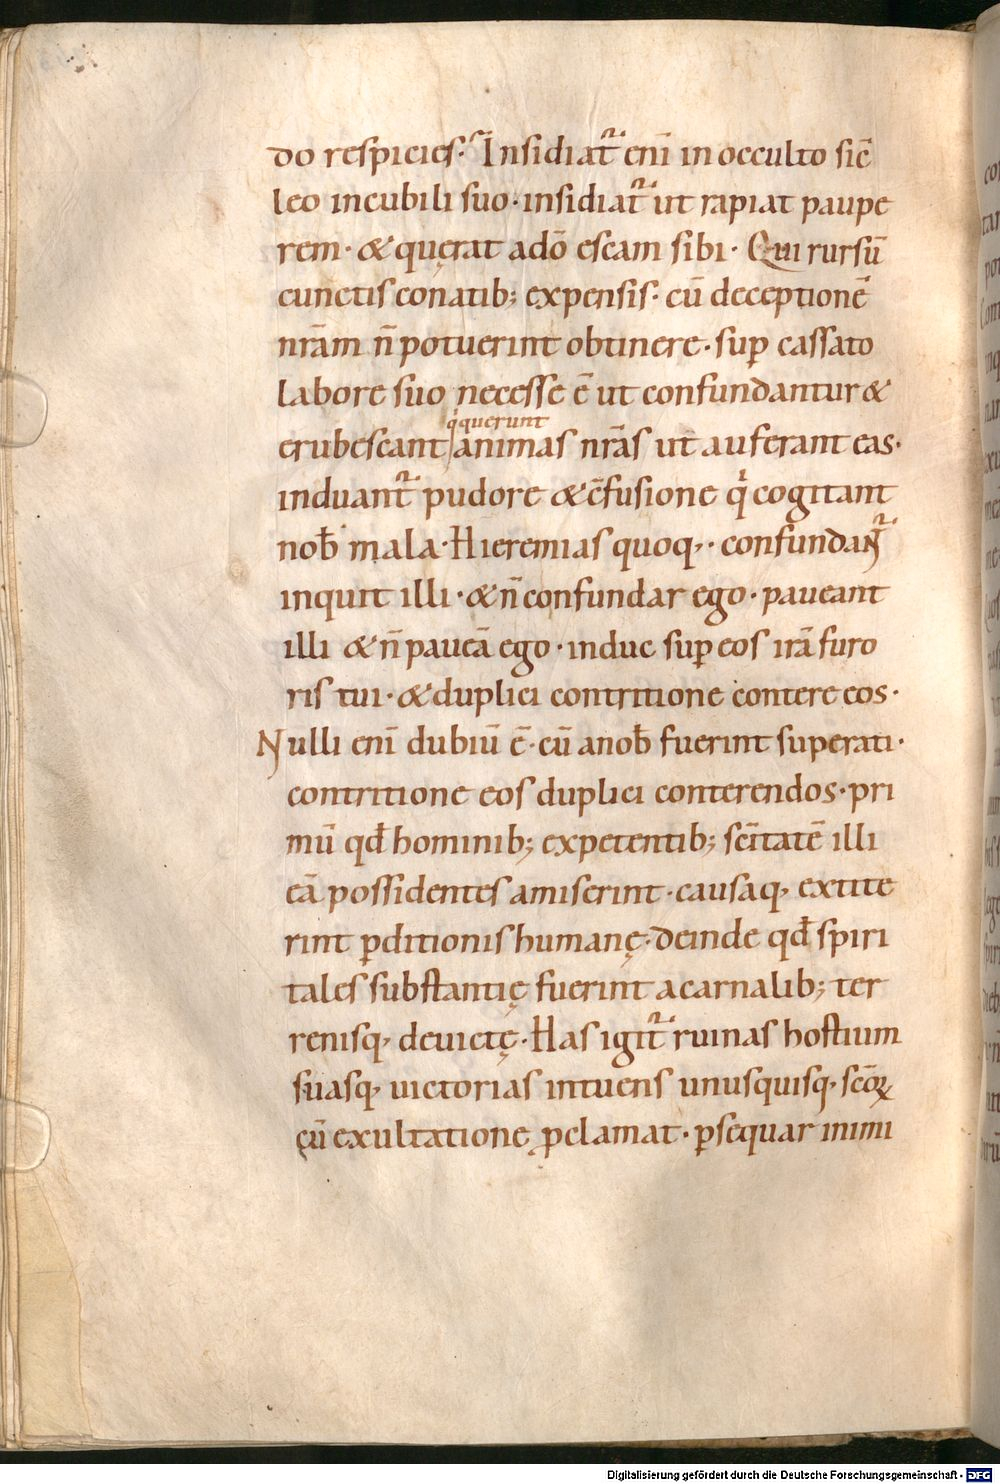 do respicies. Insidiat᷑ eni̅ in occulto sic̅
leo in cubili suo. insidiat᷑ ut rapiat paupe
rem. & quęrat a dō escam sibi. Qui rursū
cunctis conatib; expensis. cū deceptionē
nr̅am n̅ potuerint obtinere. suꝑ cassato
labore suo necesse ē ut confundantur &
qͥ querunt
erubescant animas nr̅as ut auferant eas.
induant᷑ pudore & c̅fusione qͥ cogitant
nob̅ mala. Hieremias quoq, . confundant᷑
inquit illi. & n̅ confundar ego. paueant
illi & n̅ paueā ego. induc suꝑ eos irā furo
ris tui. & duplici contritione contere eos.
Nulli eni̅ dubiū ē. cū a nob̅ fuerint superati.
contritione eos duplici conterendos. pri
mū qd̅ hominib; expetentib; sc̅itatē illi
eā possidentes amiserint. causaq, extite
rint ꝑditionis humanę. deinde qd̅ spiri
tales substantię fuerint a carnalib; ter
renisq, deuictę. Has igit᷑ ruinas hostium
suasq, uictorias intuens unusquisq, sc̅oꝝ
cū exultatione ꝓclamat. ꝑsequar inimi
Digitalisierung gefördert durch die Deutsche Forschungsgemeinschaft - DFG